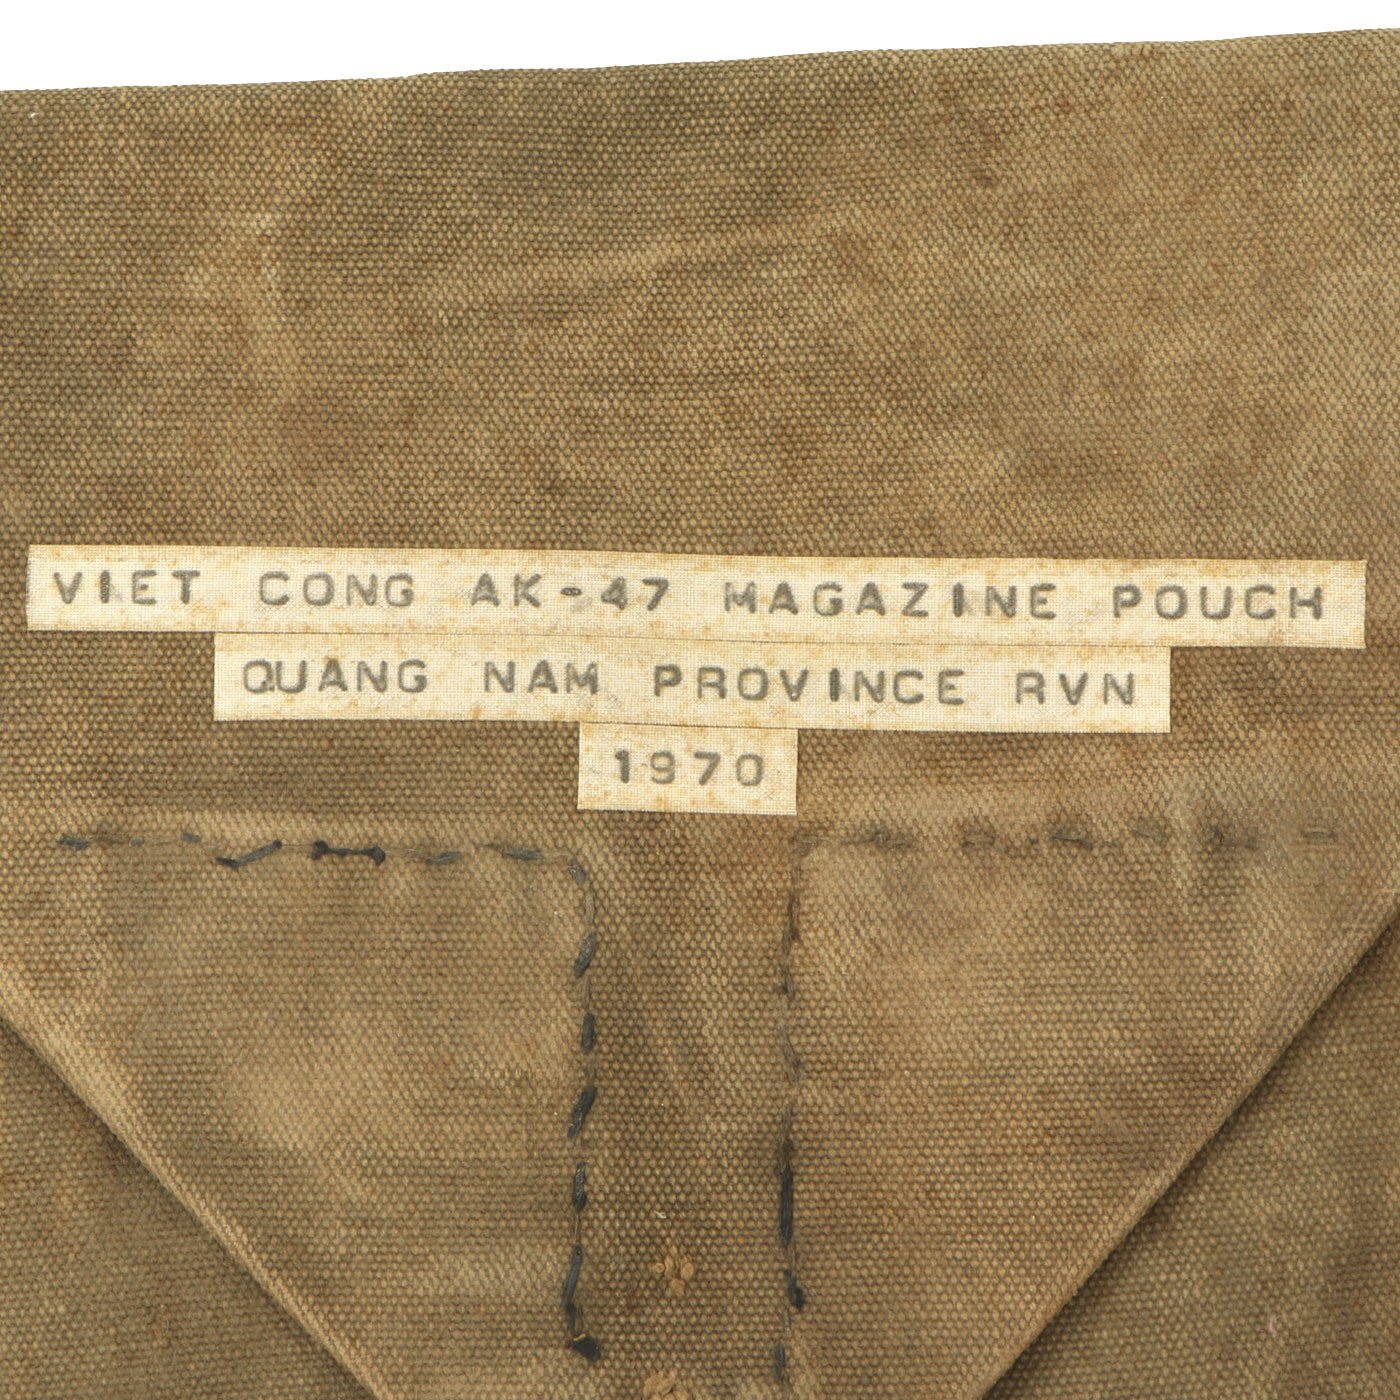 VIET CONG AK-47 MAGAZINE POUCH
QUANG NAM PROVINCE RVN
1970